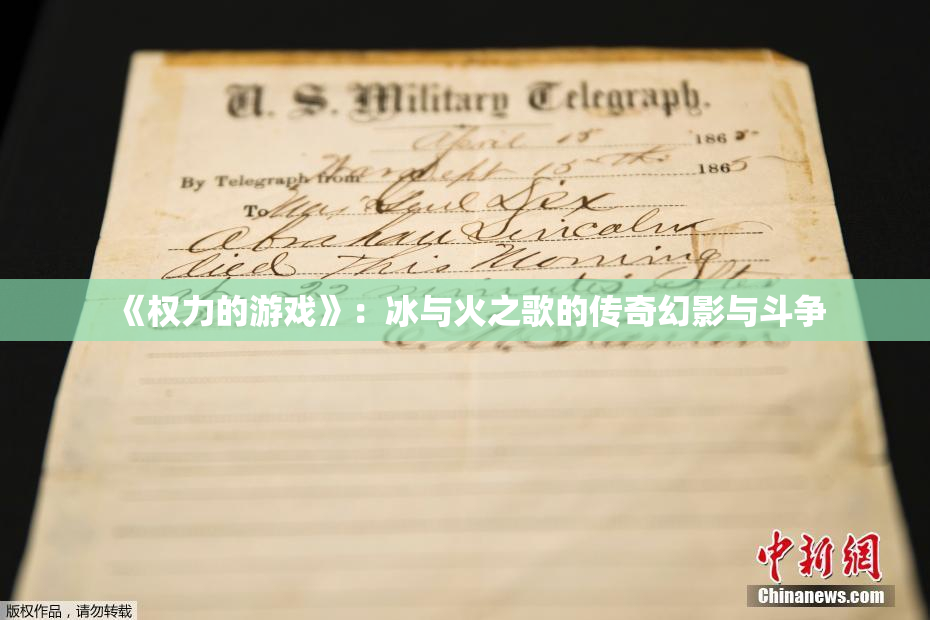 U. S. Military Telegraph.
April 15 1865
By Telegraph from War Dept 15th 1865
To Maj Genl Dix
Abraham Lincoln
died This Morning
at 22 minutes after
《权力的游戏》：冰与火之歌的传奇幻影与斗争
E. M. Stanton
中新网
Chinanews.com
版权作品，请勿转载